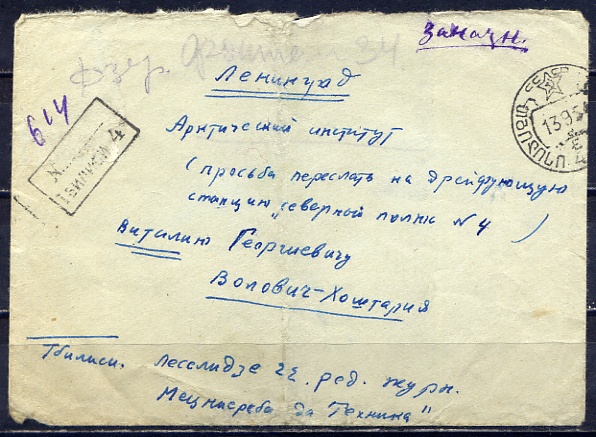 Заказн.
Ленинград
614
№
Тбилиси 4
13 9 54
Арктический институт
(просьба переслать на дрейфующую
станцию „северный полюс N 4 )
Виталию Георгиевичу
Волович-Хоштария
Тбилиси. Леселидзе 22. ред. журн.
Мецниереба да Техника"